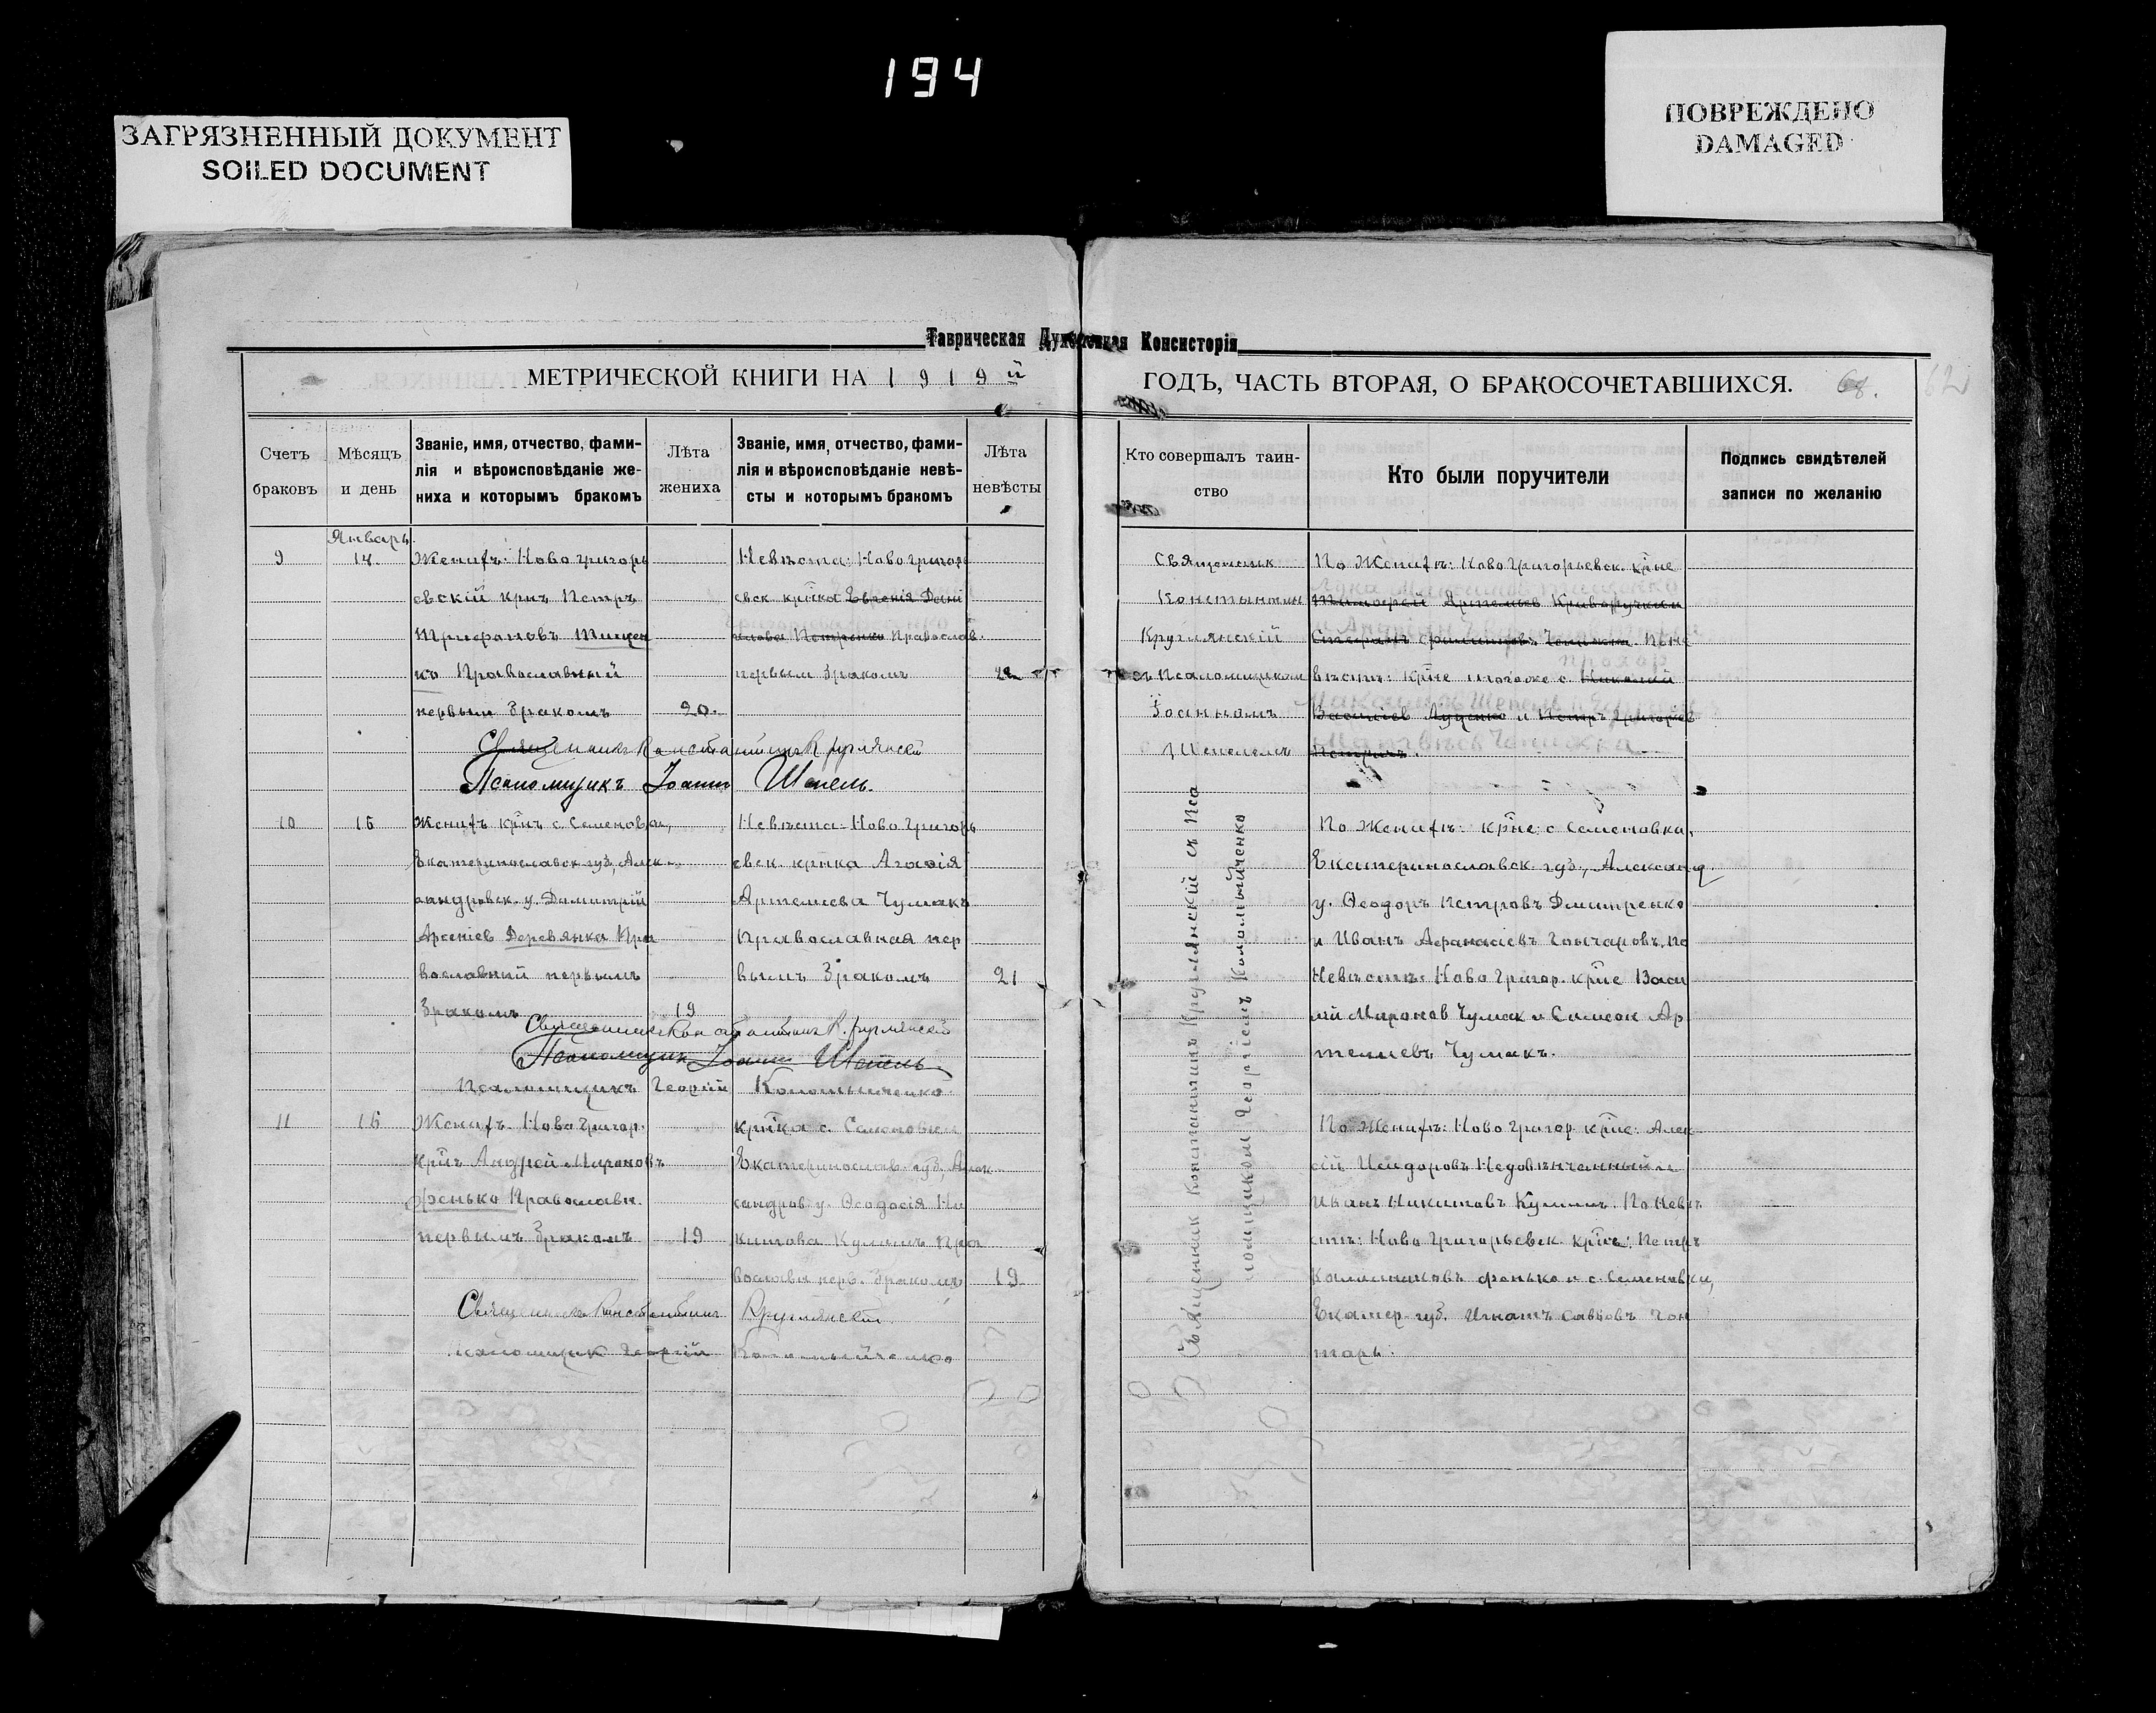 194
ЗАГРЯЗНЕННЫЙ ДОКУМЕНТ
SOILED DOCUMENT
ПОВРЕЖДЕНО
DAMAGED
Таврическая Духовная Консисторія
МЕТРИЧЕСКОЙ КНИГИ НА 1919й
ГОДЪ, ЧАСТЬ ВТОРАЯ, О БРАКОСОЧЕТАВШИХСЯ. 68. 62
Счетъ браковъ
Мѣсяцъ и день
Званіе, имя, отчество, фами-
лія и вѣроисповѣданіе же-
ниха и которымъ бракомъ
Лѣта жениха
Званіе, имя, отчество, фами-
лія и вѣроисповѣданіе невѣ-
сты и которымъ бракомъ
Лѣта невѣсты
Кто совершалъ таин-
ство
Кто были поручители
Подпись свидѣтелей
записи по желанію
9
Январь
14.
Женихъ: Ново Григорь
евскій крнъ Петръ
Трифоновъ Тищен
ко Православный
первым бракомъ
20.
Невѣста: Ново Григорь
евск. крнка Евгенія Дани
илова Петренко Православ.
первым бракомъ
Священник
Константин
Круглянскій
съ Псаломщиком
Іоанномъ
Шепелемъ
По Женихѣ: Ново Григорьевск. крне
Тимофей Артемьев Криворучкин
Стефанъ Филипповъ Чепижка. По не
вѣстѣ: крне тогоже с. Николай
Василіев Луценко и Петръ Григорьев
Священникъ Константинъ Круглянскій
Псаломщикъ Іоанн Шепель.
10
15
Женихъ крнъ с. Семеновки,
Екатеринославск. губ., Алек-
сандровск. у. Димитрій
Арсеніев Деревянка Пра
вославный первымъ
бракомъ
19
Невѣста: Ново Григорь
евск. крнка Агафія
Артемиева Чумакъ
Православная пер
вымъ бракомъ
21
По Женихѣ: крне с. Семеновки,
Екатеринославск. губ., Александ.
у. Ѳеодоръ Петровъ Дмитренко
и Иванъ Афанасіевъ Гончаровъ. По
Невѣстѣ: Ново Григор. крне Васи
лій Миронов Чумак и Симеон Ар
темиевъ Чумакъ.
Священникъ Константинъ Круглянскій
Псаломщикъ Іоанн Шепель
Псаломщикъ Георгій Коломыйченко
11
16
Женихъ. Ново Григор.
крнъ Андрей Мироновъ
Фенько Православн.
первымъ бракомъ
19
крнка с. Семеновки
Екатеринослав. губ., Алек
сандров у. Ѳеодосія Ни
китова Кулишъ Пра
вославн перв. бракомъ
19
По Женихѣ: Ново Григор крне: Алек
сій Исидоровъ Недовѣнчанный и
Иванъ Никитовъ Кулишъ. По Невѣ
стѣ: Ново Григорьевск. крне: Петръ
Каллиниковъ Фенько и с. Семеновки,
Екатер. губ. Игнатъ Саввовъ Гон
тарь.
Священникъ Константинъ Круглянскій
Псаломщик Георгій Коломыйченко
Священник Константинъ Круглянскій съ Пса
ломщиком Георгіемъ Коломыйченко